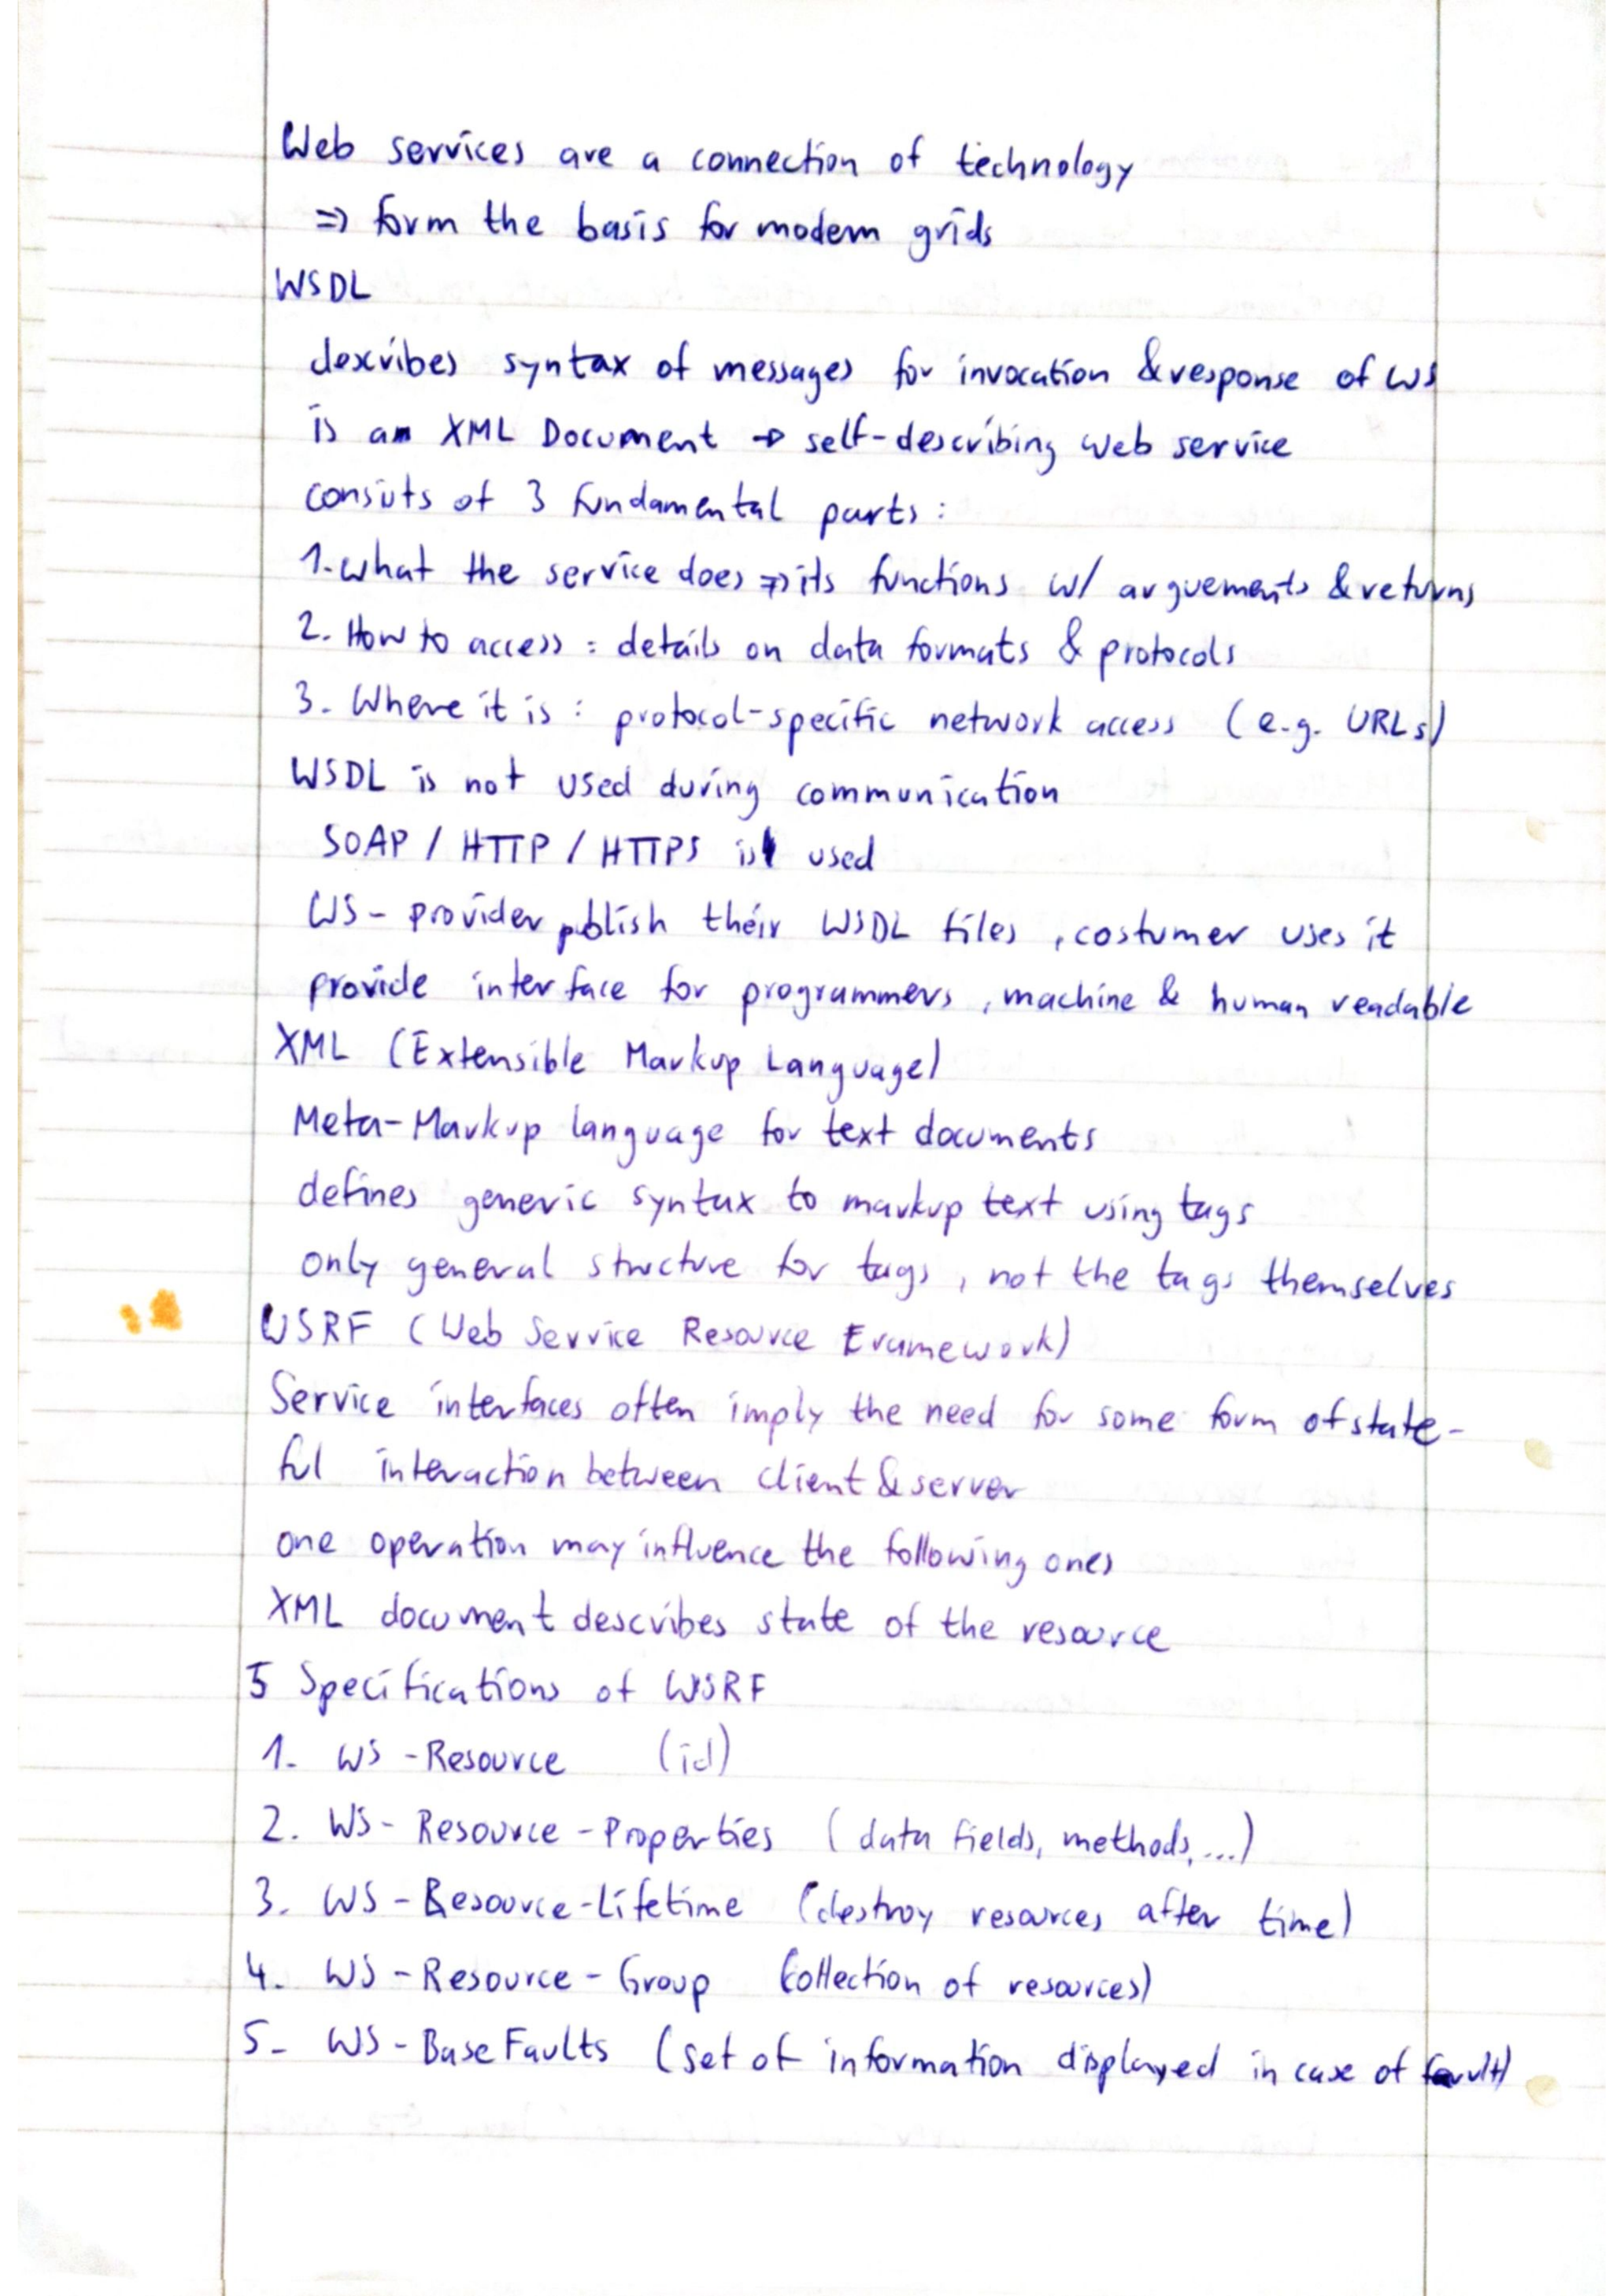 Web services are a connection of technology
=> form the basis for modern grids
WSDL
describes syntax of messages for invocation & response of WS
is a XML Document -> self-describing web service
consists of 3 fundamental parts:
1. what the service does => its functions w/ arguements & returns
2. How to access: details on data formats & protocols
3. Where it is: protocol-specific network access (e.g. URLs)
WSDL is not used during communication
SOAP / HTTP / HTTPS is used
WS-provider publish their WSDL files, costumer uses it
provide interface for programmers, machine & human readable
XML (Extensible Markup Language)
Meta-Markup language for text documents
defines generic syntax to markup text using tags
only general structure for tags, not the tags themselves
WSRF (Web Service Resource Framework)
Service interfaces often imply the need for some form of state-
ful interaction between client & server
one operation may influence the following ones
XML document describes state of the resource
5 Specifications of WSRF
1. WS-Resource (id)
2. WS-Resource-Properties (data fields, methods, ...)
3. WS-Resource-Lifetime (destroy resources after time)
4. WS-Resource-Group (collection of resources)
5. WS-BaseFaults (set of information displayed in case of fault)